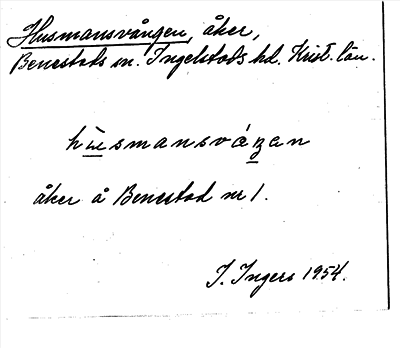 Husmansvången, åker,
Benestads sn. Ingelstads hd. Krist. län.
hùsmansváŋan
åker å Benestad nr 1.
I. Ingers 1954.